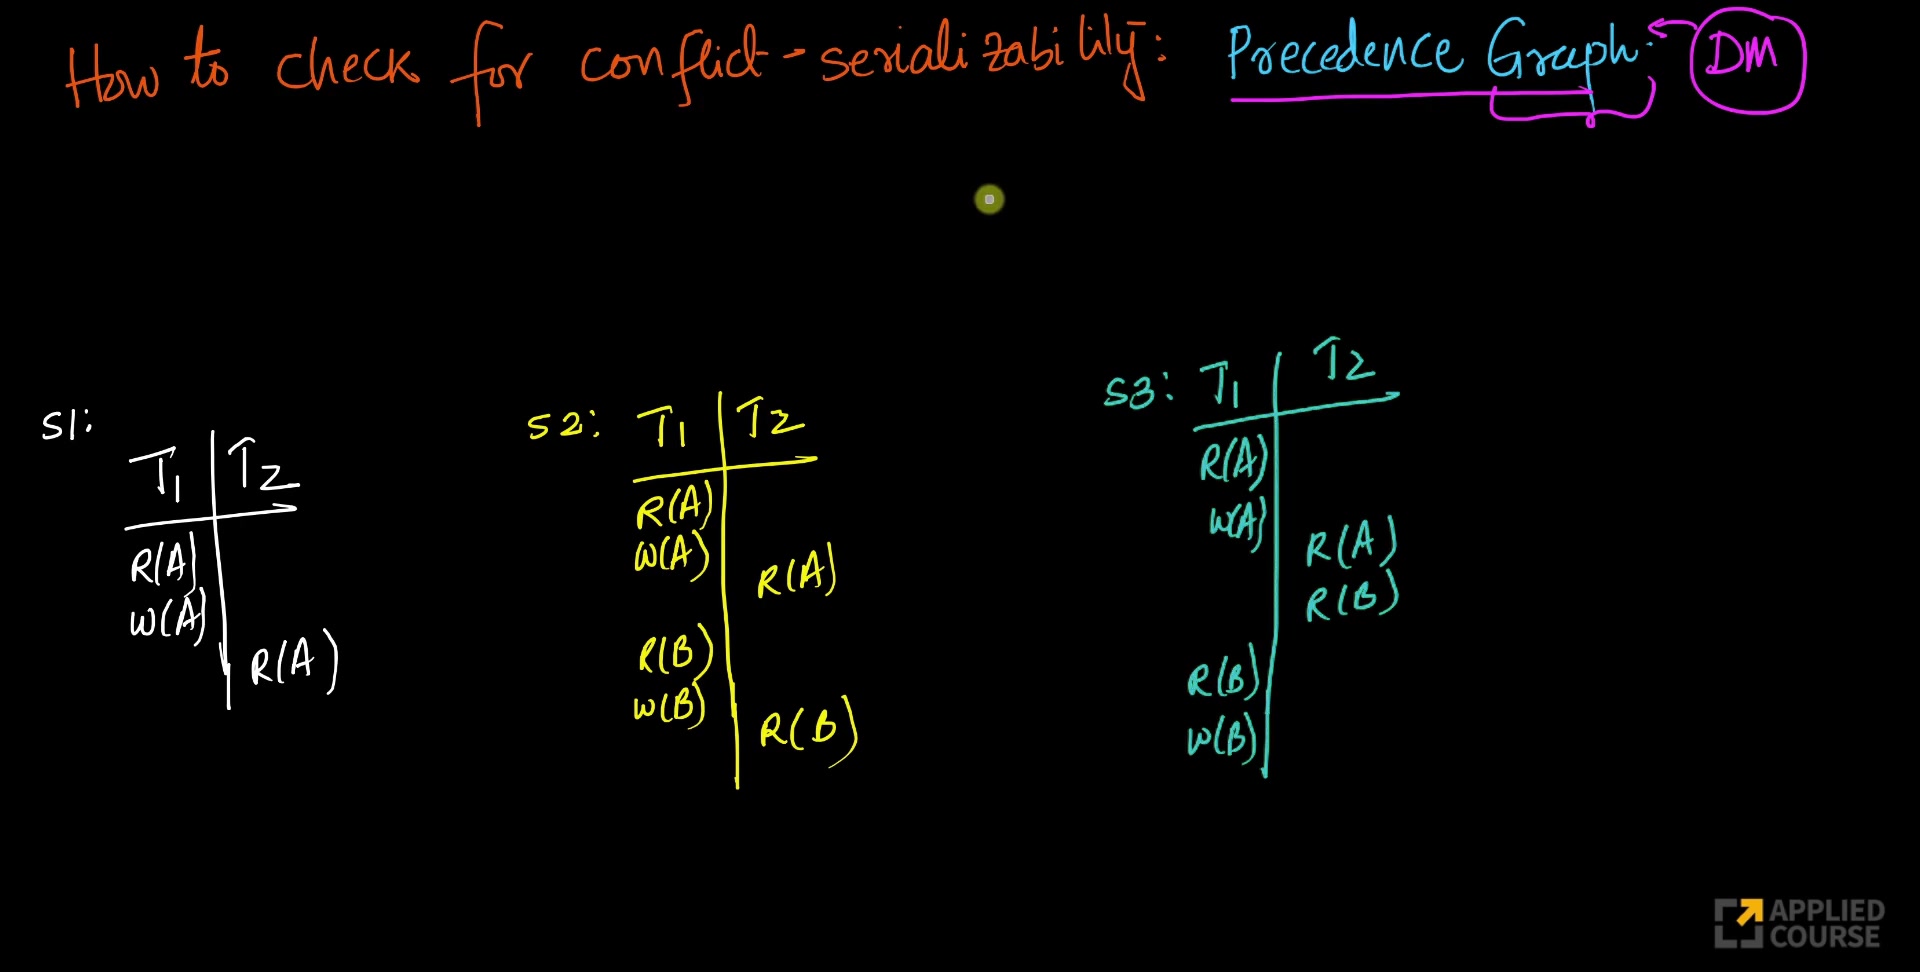 How to check for conflict-serializability: Precedence Graph. DM
S1:
T1 T2
R(A)
W(A)
R(A)
S2: T1 T2
R(A)
W(A)
R(A)
R(B)
W(B)
R(B)
S3: T1 T2
R(A)
W(A)
R(A)
R(B)
R(B)
W(B)
APPLIED
COURSE